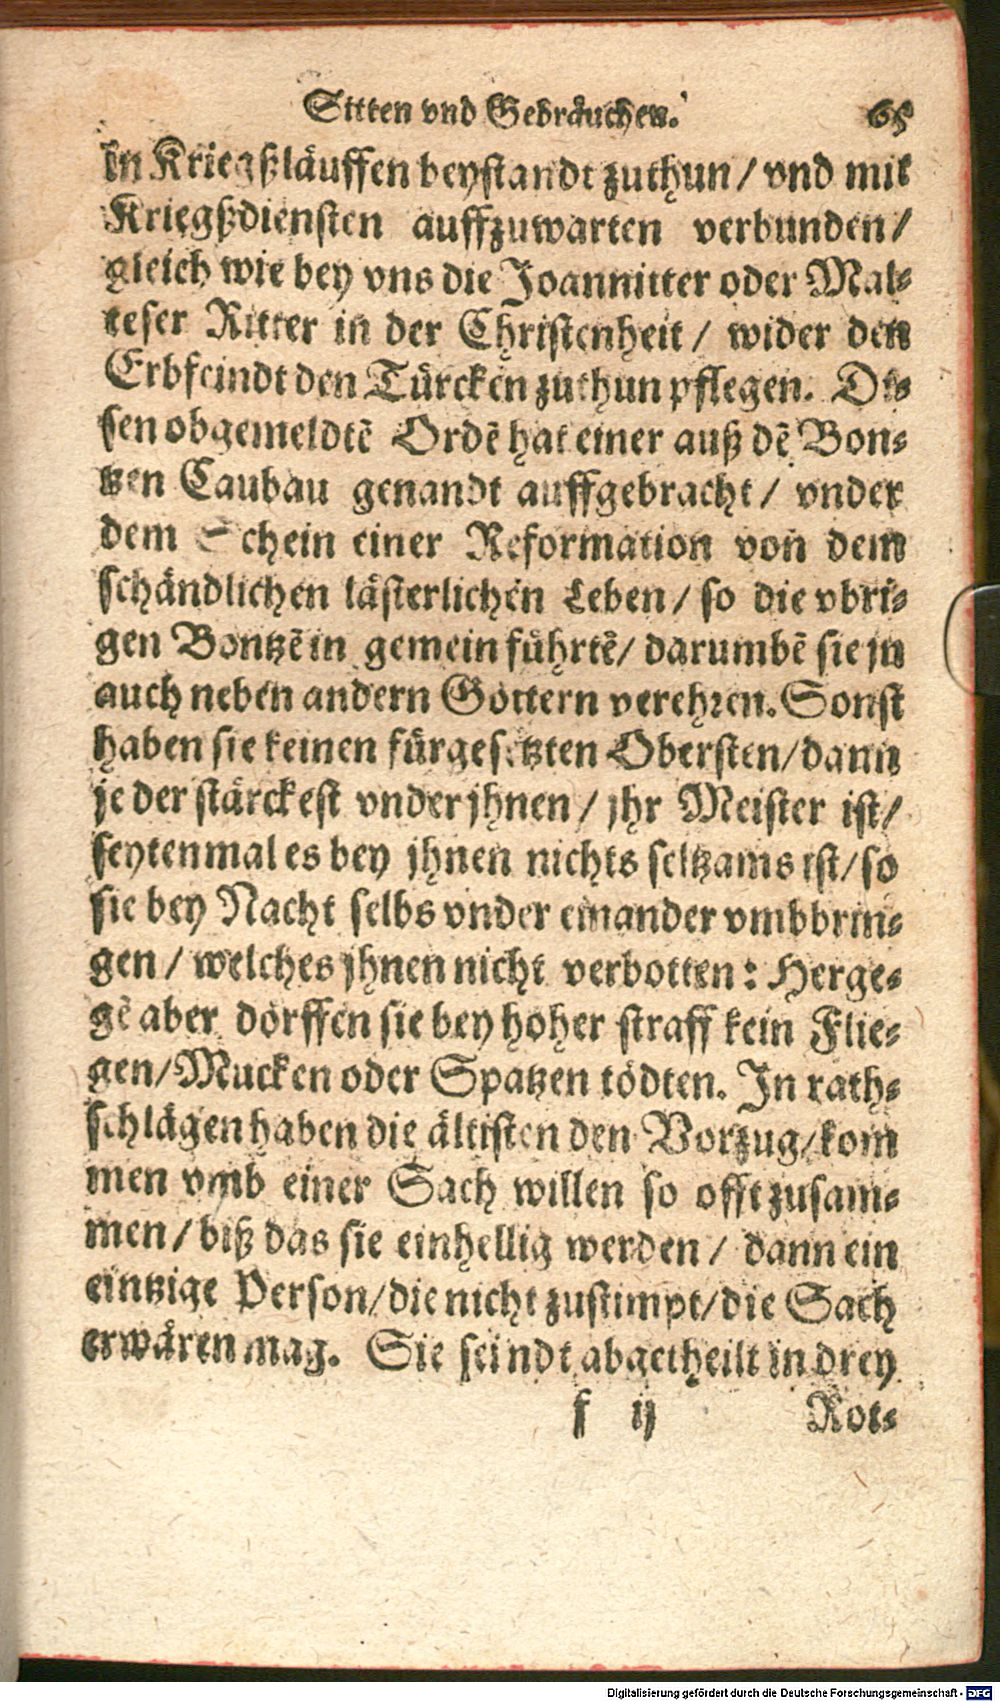 Sitten vnd Gebräuchen. 65
in Kriegßläuffen beystandt zuthun / vnd mit
Kriegßdiensten auffzuwarten verbunden /
gleich wie bey vns die Joannitter oder Mal-
teser Ritter in der Christenheit / wider den
Erbfeindt den Türcken zuthun pflegen. Di-
sen obgemeldtē Ordē hat einer auß dē Bon-
tzen Caubau genandt auffgebracht / vnder
dem Schein einer Reformation von dem
schändlichen lästerlichen Leben / so die vbri-
gen Bontzē in gemein führtē / darumbē sie jn
auch neben andern Göttern verehren. Sonst
haben sie keinen fürgesetzten Obersten / dann
je der stärckest vnder jhnen / jhr Meister ist /
seytenmal es bey jhnen nichts seltzams ist / so
sie bey Nacht selbs vnder einander vmbbrin-
gen / welches jhnen nicht verbotten: Herge-
gē aber dörffen sie bey hoher straff kein Flie-
gen / Mucken oder Spatzen tödten. In rath-
schlägen haben die ältisten den Vorzug / kom
men vmb einer Sach willen so offt zusam-
men / biß das sie einhellig werden / dann ein
eintzige Person / die nicht zustimpt / die Sach
erwären mag. Sie seindt abgetheilt in drey
f ij Rot-
Digitalisierung gefördert durch die Deutsche Forschungsgemeinschaft - DFG